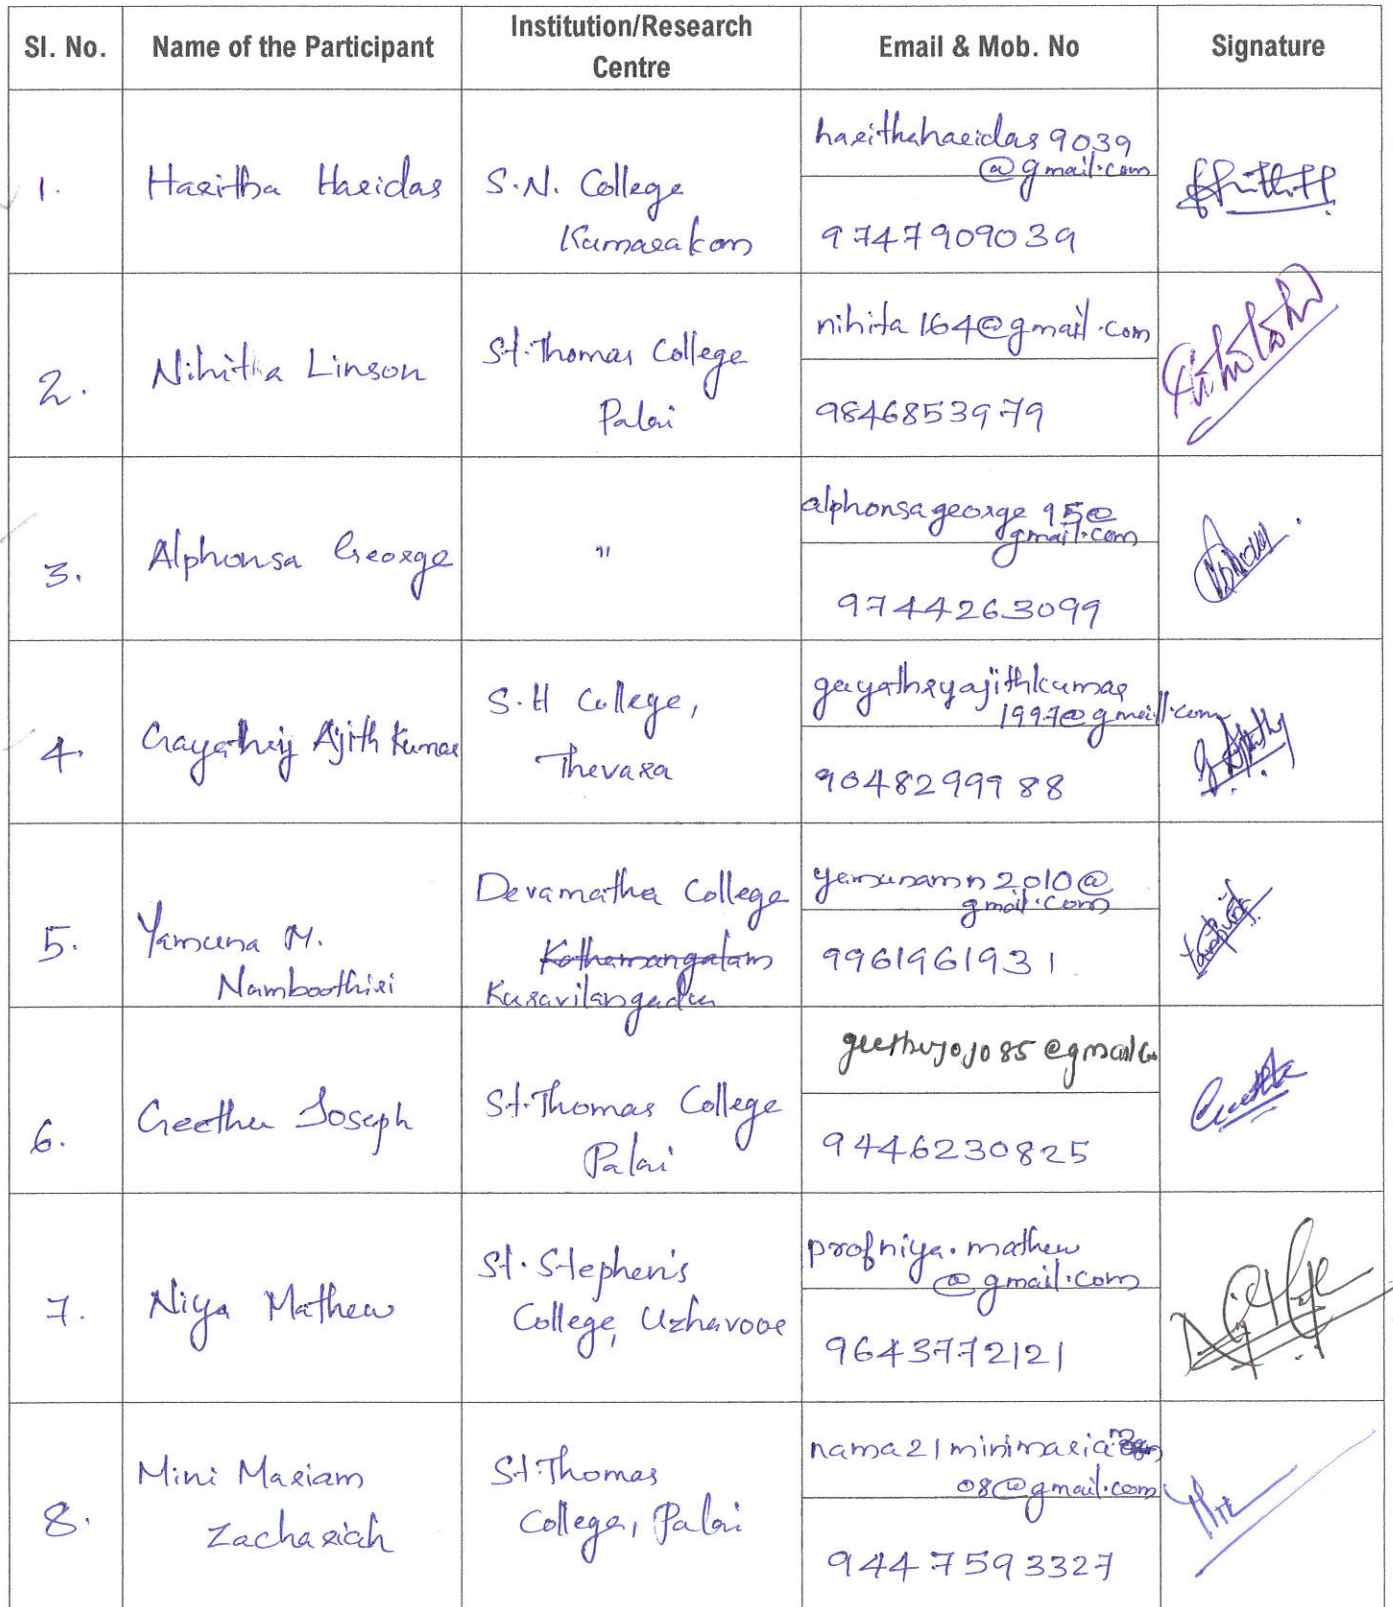 Sl. No. Name of the Participant Institution/Research Centre Email & Mob. No Signature
1. Haritha Haridas S.N. College
Kumarakom
harithaharidas9039
@gmail.com
9747909039
2. Nihitha Linson St.Thomas College
Palai
nihita164@gmail.com
9846853979
3. Alphonsa George "
alphonsageorge95@
gmail.com
9744263099
4. Gayathry Ajith Kumar S.H College,
Thevara
gayathryajithkumar
1997@gmail.com
9048299988
5. Yamuna M.
Namboothiri
Devamatha College
Kothamangalam
Kuravilangadu
yamunamn2010@
gmail.com
9961961931
6. Geethu Joseph St.Thomas College
Palai
geethujojo85@gmail.co
9446230825
7. Niya Mathew St. Stephen's
College, Uzhavoor
profniya.mathew
@gmail.com
9643772121
8. Mini Mariam
Zachariah
St.Thomas
College, Palai
nama21minimariam
08@gmail.com
9447593327